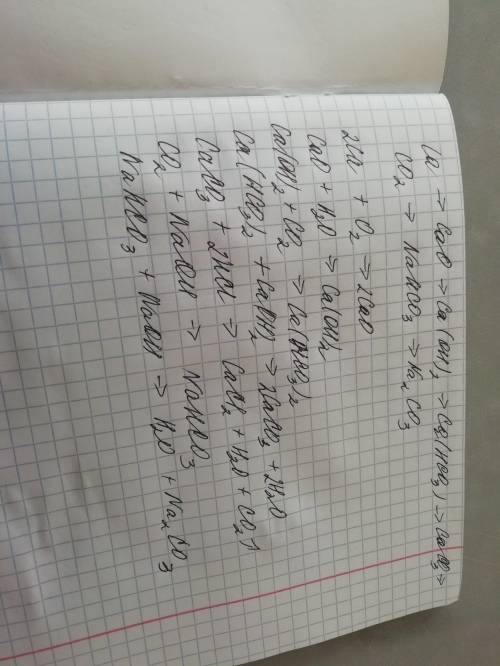 Ca → CaO → Ca(OH)₂ → Ca(HCO₃) → CaCO₃ →
CO₂ → NaHCO₃ → Na₂CO₃
2Ca + O₂ → 2CaO
CaO + H₂O → Ca(OH)₂
Ca(OH)₂ + CO₂ → Ca(HCO₃)₂
Ca(HCO₃)₂ + Ca(OH)₂ → 2CaCO₃ + 2H₂O
CaCO₃ + 2HCl → CaCl₂ + H₂O + CO₂↑
CO₂ + NaOH → NaHCO₃
NaHCO₃ + NaOH → H₂O + Na₂CO₃